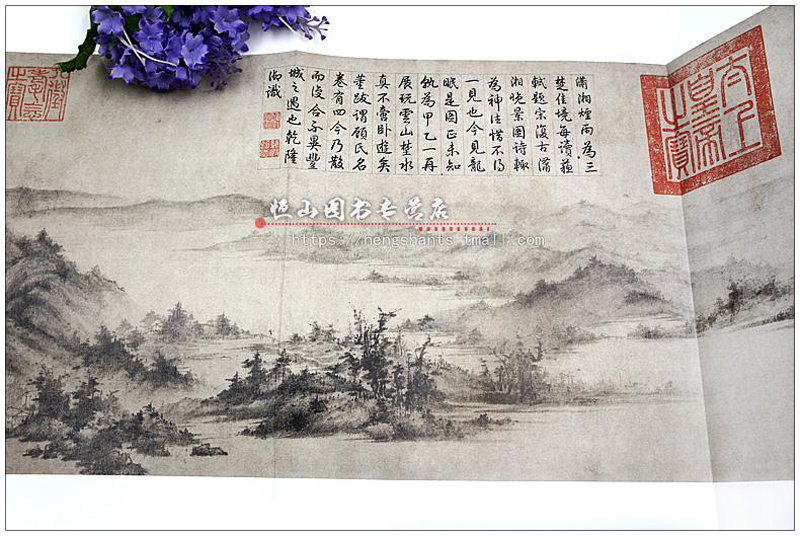 太上
皇帝
之寶
瀟湘煙雨為三
楚佳境每讀蘇
軾題宋復古瀟
湘晚景圖詩輒
為神往惜不得
一見也今見龍
眠是圖正未知
孰為甲乙一再
展玩雲山楚水
真不啻卧遊矣
董跋謂顧氏名
卷有四今乃散
而復合不異豐
城之遇也乾隆
御識
八徵
耄念
之寶
恒山图书专营店
https://hengshants.tmall.com